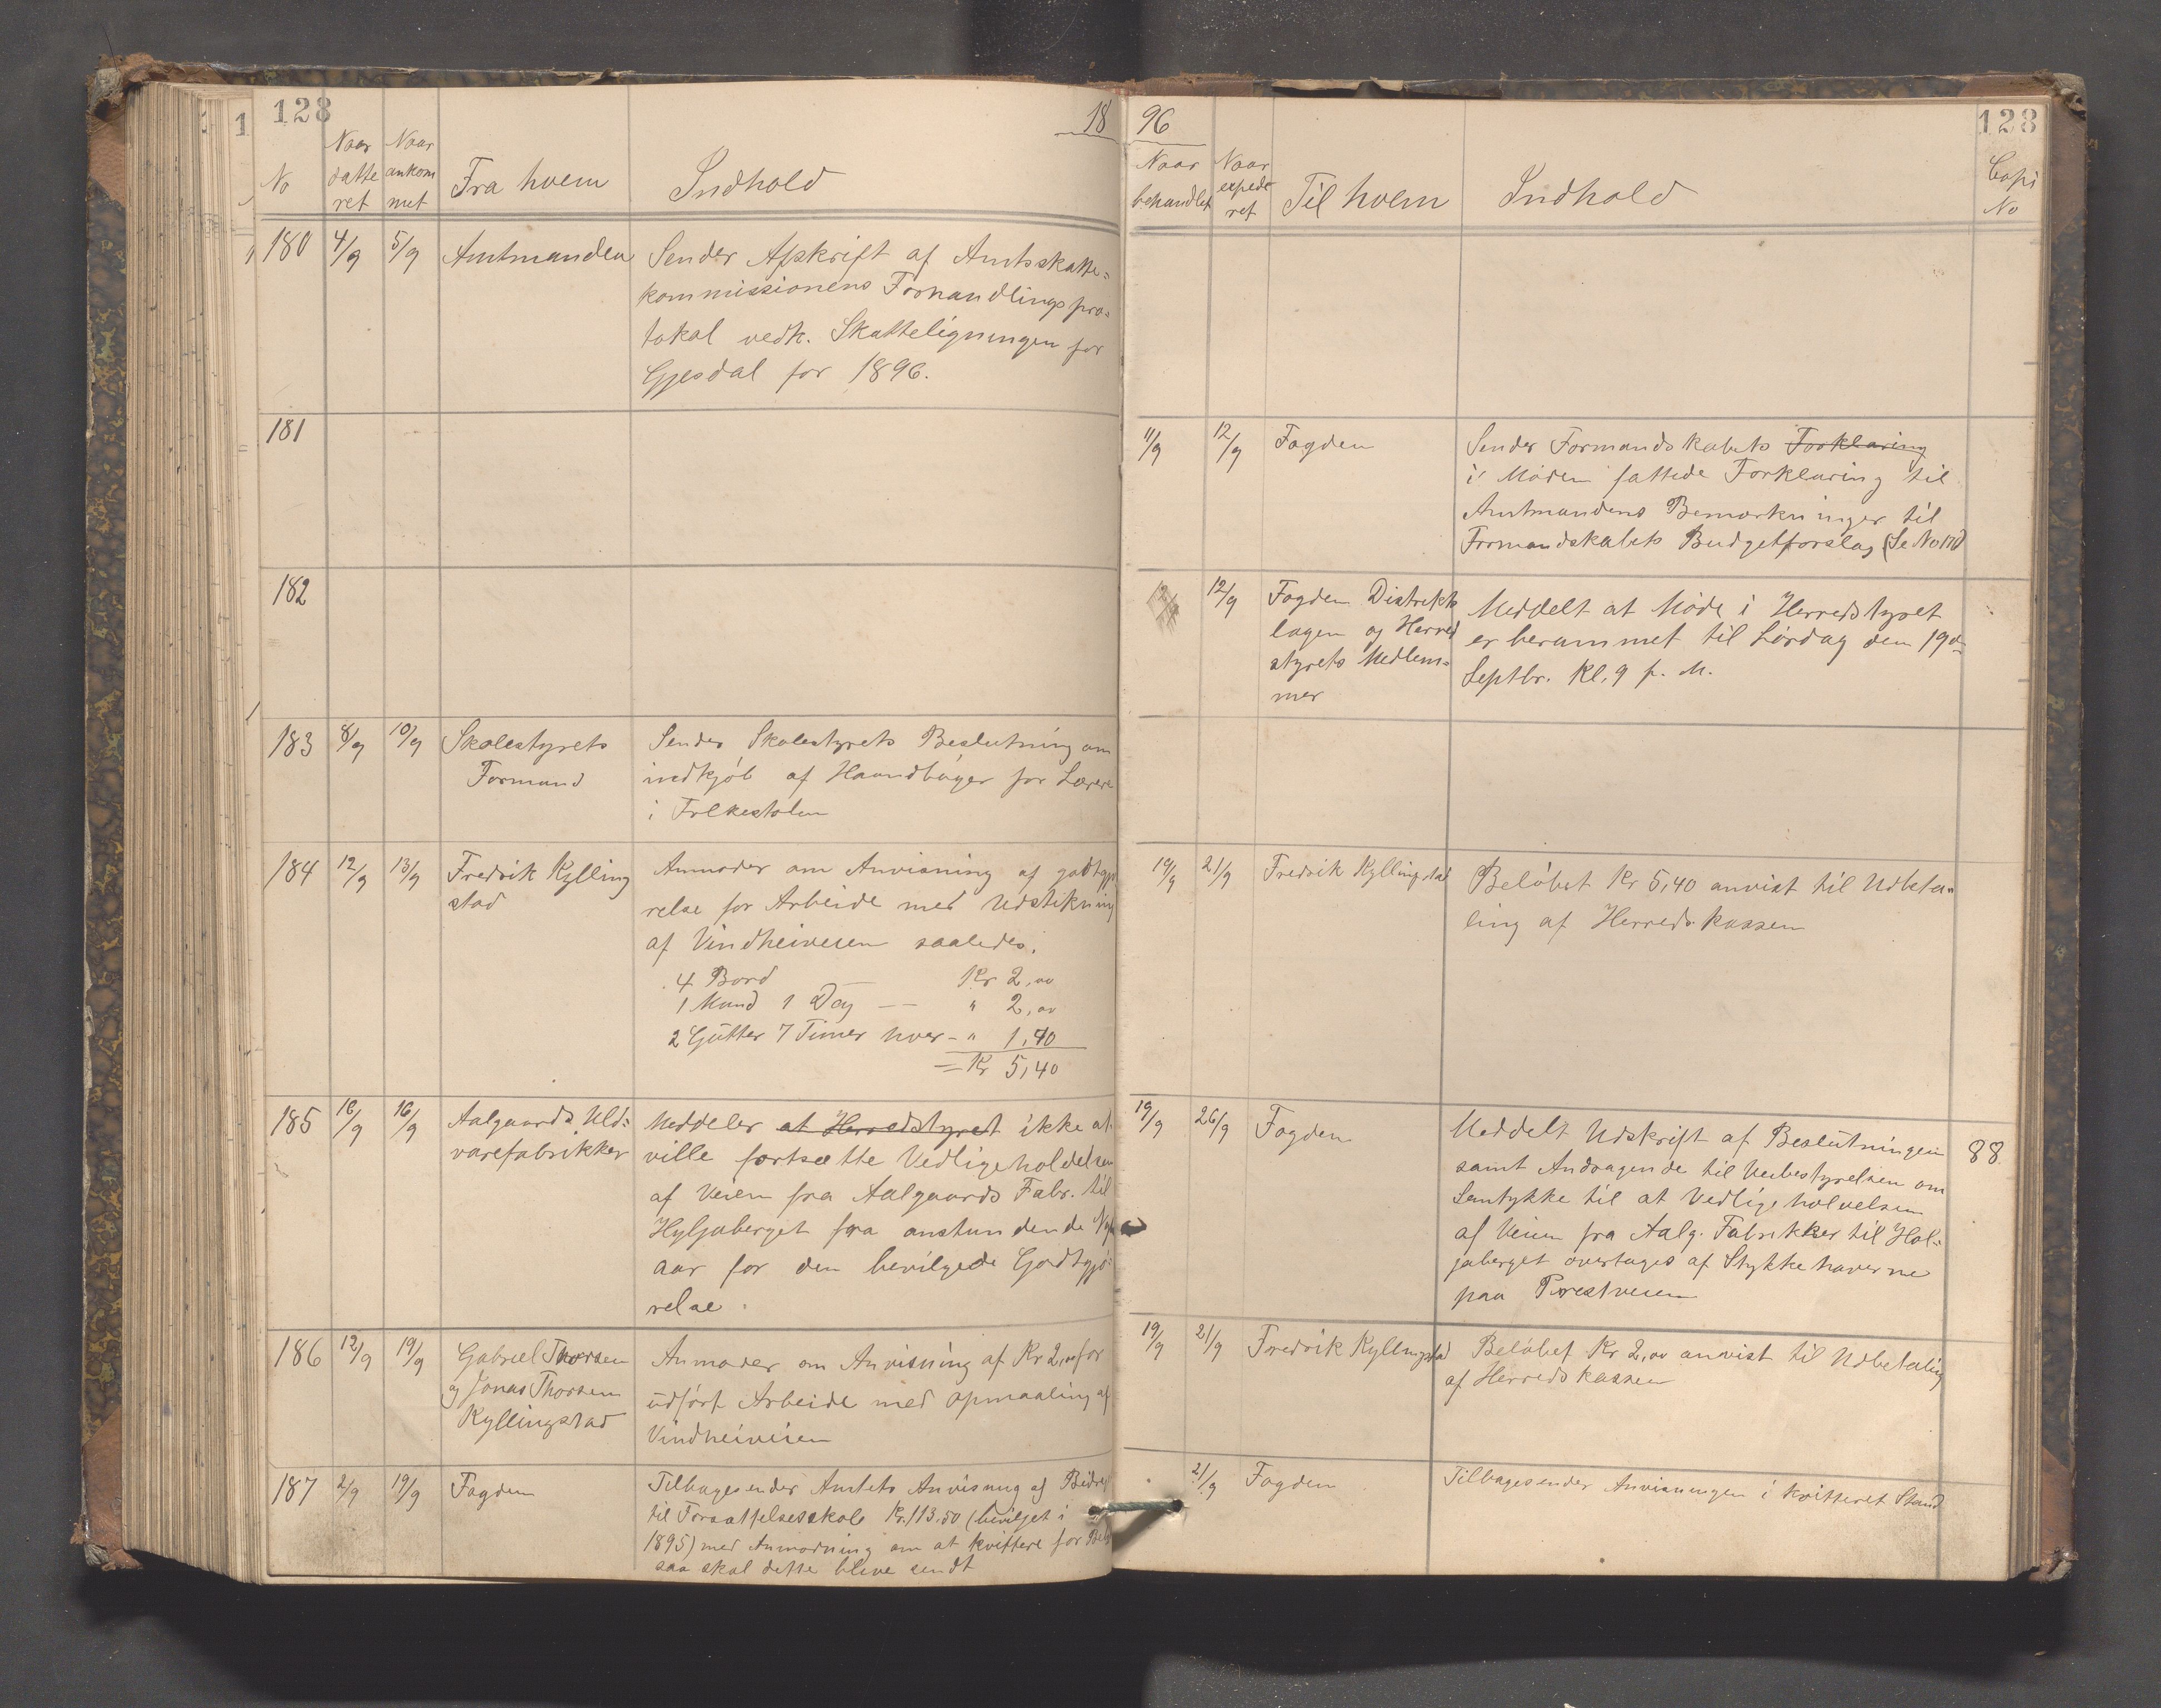 128
18
No
Naar datteret
Naar ankommet
Fra hvem
Indhold
180 4/9 5/9 Amtmanden
Sender Afskrift af Amtsskatte=
kommissionens Forhandlingspro=
tokal vedk. Skatteligningen for
Gjesdal for 1896.
181
182
183 8/9 10/9 Skolestyrets
Formand
Sender Skolestyrets Beslutning om
indkjøb af Haandbøger for Lærere
i Folkeskolen
184 12/9 13/9 Fredrik Kylling
stad
Anmoder om Anvisning af godtgjø
relse for Arbeide med Udstikning
af Vindheiveien saaledes.
4 Bord — Kr 2,00
1 Mand 1 Dag — — " 2,00
2 Gutter 7 Timer hver — " 1,40
= Kr 5,40
185 16/9 16/9 Aalgaards Uld=
varefabrikker
Meddeler at Herredstyret ikke at
ville fortsætte Vedligeholdelsen
af Veien fra Aalgaards Fabr. til
Hyljaberget fra anstundende Nyt
aar for den bevilgede Godtgjø=
relse.
186 12/9 19/9 Gabriel Thorsen
og Jonas Thorsen
Kyllingstad
Anmoder om Anvisning af Kr 2,00 for
udført Arbeide med opmaaling af
Vindheiveien
187 2/9 19/9 Fogden
Tilbagesender Amtets Anvisning af Bidrag
til Forsættelsesskole Kr. 113,50 (bevilget i
1895) med Anmodning om at kvittere for
saa skal dette blive sendt
96
128
Naar behandlet
Naar expederet
Til hvem
Indhold
Copi No
11/9 12/9 Fogden
Sender Formandskabets Forklaring
i Møden fattede Forklaring til
Amtmandens Bemærkninger til
Formandskabets Budgetforslag (Se No
12/9 Fogden Distrikts
lægen og Herred
styrets Medlem=
mer
Meddelt at Møde i Herredstyret
er berammet til Lørdag den 19de
Septbr. Kl. 9 f. M.
19/9 21/9 Fredrik Kyllingstad
Beløbet Kr 5,40 anvist til Udbeta=
ling af Herredskassen
19/9 26/9 Fogden
Meddelt Udskrift af Beslutningen
samt Andragende til Veibestyrelsen om
Samtykke til at Vedligeholdelsen
af Veien fra Aalg. Fabrikker til Hol=
jaberget overtages af Stykkehaverne
paa Prestveien
88
19/9 21/9 Fredrik Kyllingstad
Beløbet Kr 2,00 anvist til Udbetaling
af Herredskassen
21/9 Fogden
Tilbagesender Anvisningen i kvitteret Stand